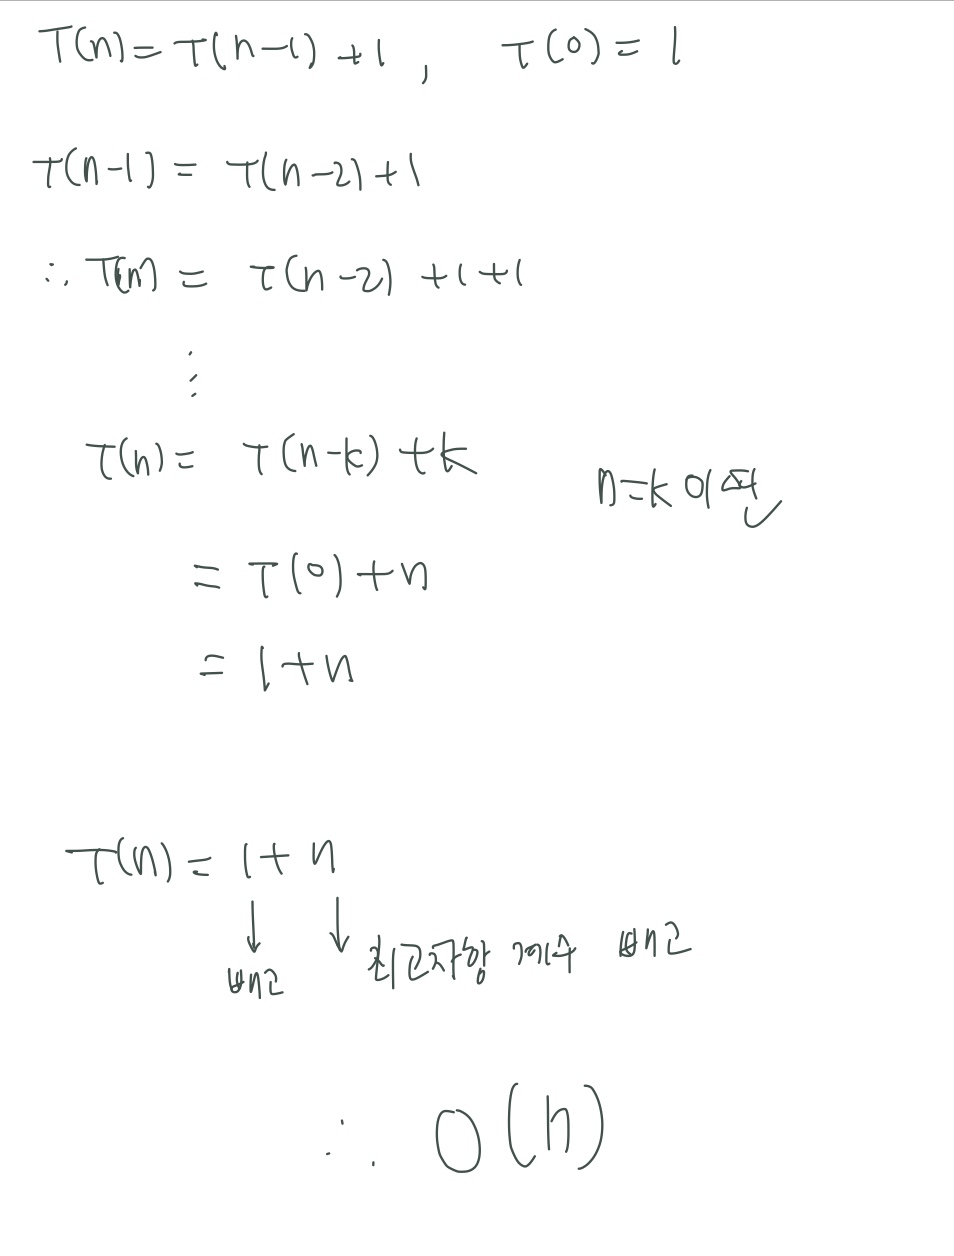 T(n) = T(n-1) + 1 , T(0) = 1
T(n-1) = T(n-2) + 1
∴ T(n) = T(n-2) + 1 + 1
⋮
T(n) = T(n-k) + k
n=k 이면
= T(0) + n
= 1 + n
T(n) = 1 + n
↓ ↓ 최고차항 계수 빼고
빼고
∴ O(n)